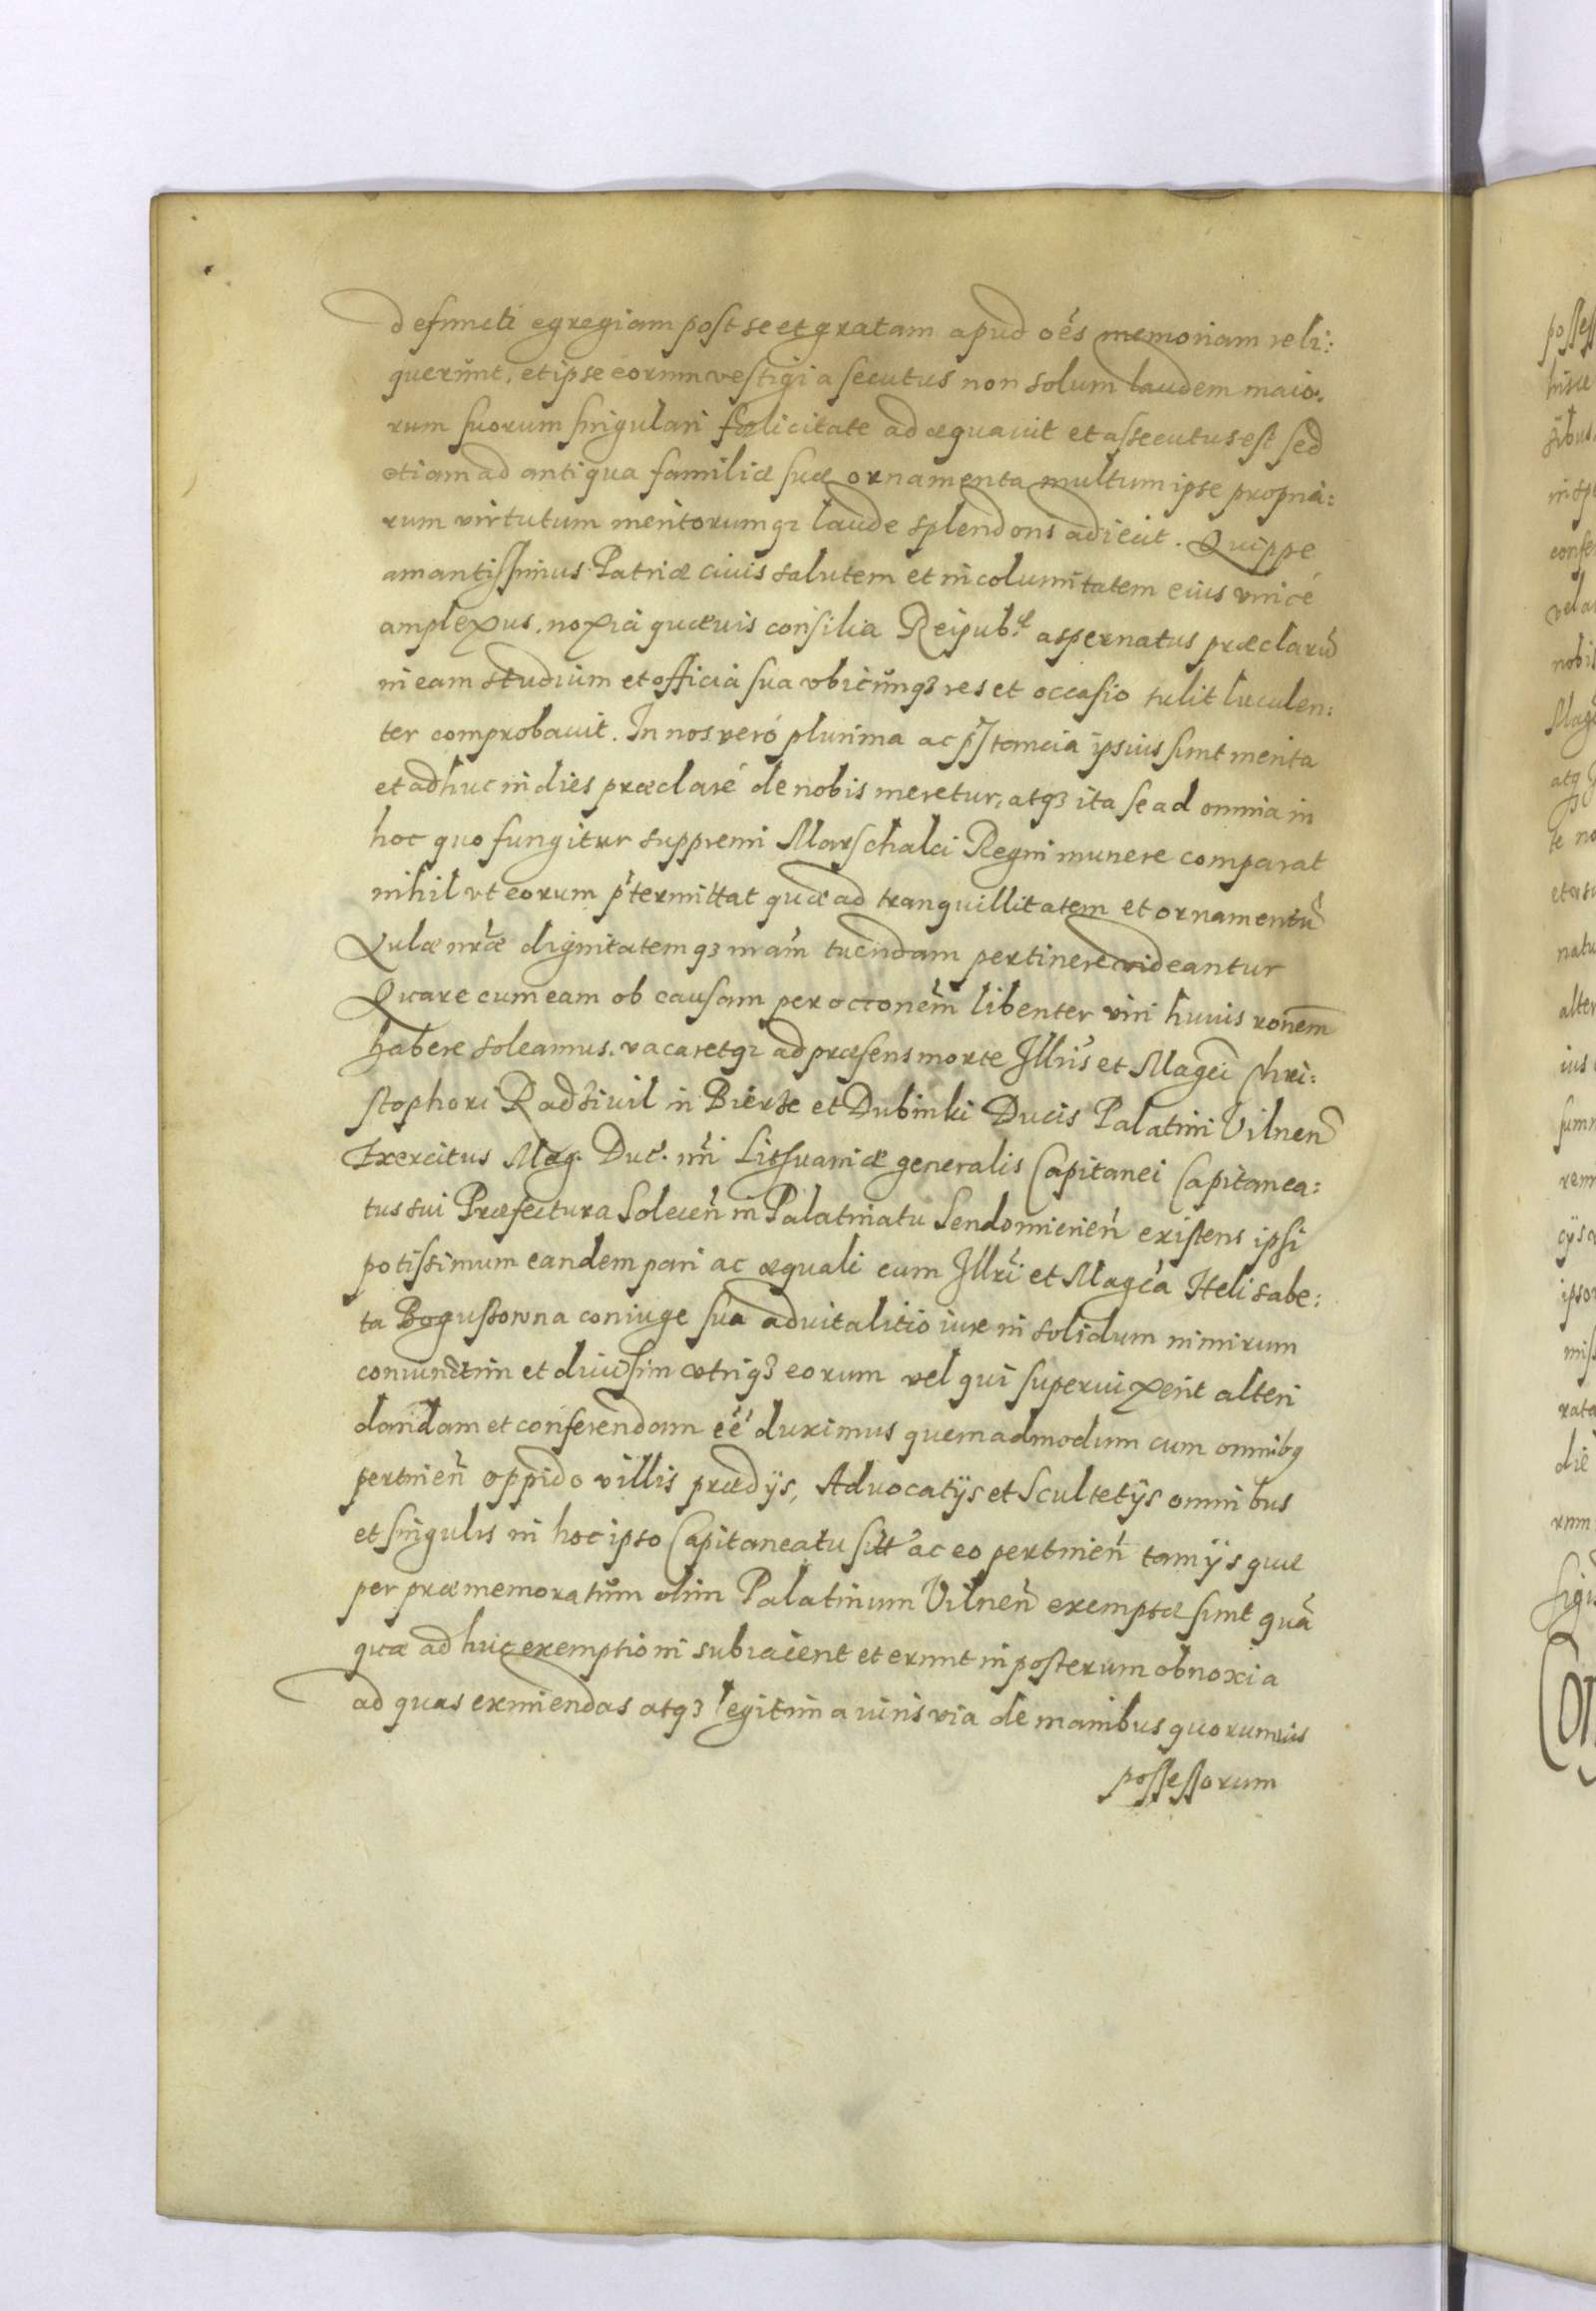 defuncti egregiam post se et gratam apud oe͂s memoriam reli:
querunt, et ipse eorum vestigia secutus non solum laudem maio.
rum suorum singulari fælicitate adæquauit et assecutus est sed
etiam ad antiqua familiæ suæ ornamenta multum ipse propria:
rum virtutum meritorumq₃ laude splendoris adiecit. Quippe
amantissimus Patriæ ciuis salutem et incolumitatem eius vnicé
amplexus, noxia quæuis consilia Reipub.æ aspernatus præclarũ
in eam studium et officia sua vbicunq₃ res et occasio tulit luculen:
ter comprobauit. In nos veró plurima ac p̃stancia ipsius sunt merita
et adhuc in dies præclaré de nobis meretur, atq₃ ita se ad omnia in
hoc quo fungitur suppremi Marschalci Regni munere comparat
nihil vt eorum p̃termittat quæ ad tranquillitatem et ornamentũ
Aulæ nr̃æ dignitatemq₃ nr̃am tuendam pertinere videantur
Quare cum eam ob causam per occonem̃ libenter viri huius ronem̃
habere soleamus. vacaretq₃ ad præsens morte Illris̃ et Magci̇̃ Chri:
stophori Radsiuil in Bierże et Dubinki Ducis Palatini Vilneñ
Exercitus Mag. Duc̃. nr̃i Lithuaniæ generalis Capitanei Capitanea:
tus sui Præfectura Soleceñ in Palatinatu Sendomirieñ existens ipsi
potissimum eandem pari ac æquali cum Illri̇̃ et Magc̃a Helisabe:
ta Bogustowna coniuge sua aduitalitio iure in solidum nimirum
coniunctim et diuisim vtriq₃ eorum vel qui superuixerit alteri
dandam et conferendam ee͂ duximus quemadmodum cum omnibq
pertineñ oppido villis prædijs, Aduocatijs et Scultetijs omnibus
et singulis in hoc ipso Capitaneatu sitt̃ ac eo pertineñ tam ijs quæ
per præmemoratum olim Palatinum Vilneñ exemptæ sunt quã
quæ adhuc exemptioni subiacent et erunt in posterum obnoxia
ad quas eximendas atq₃ legitima iuris via de manibus quorumuis
possessorum